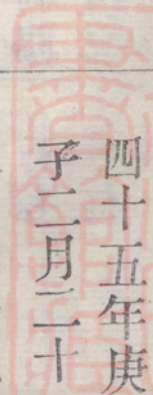 四十五年庚
子二月二十